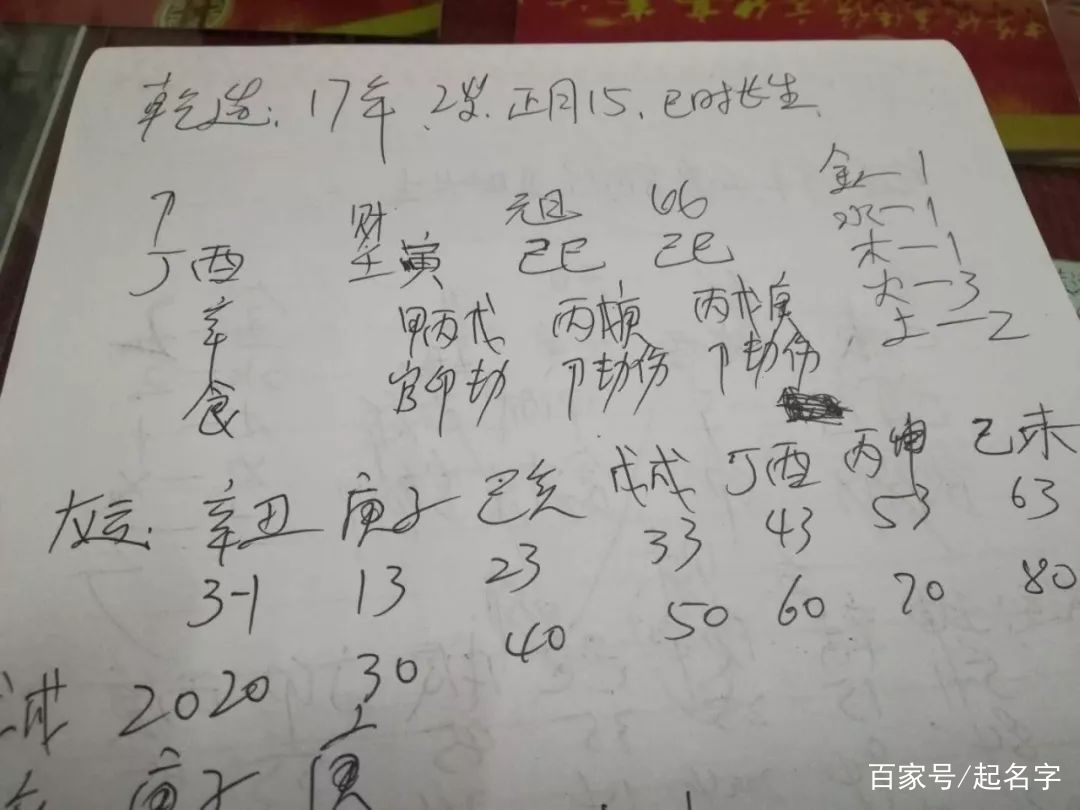 乾造：17年、2岁.正月15.巳时长生.
金—1
水—1
木—1
火—3
土—2
卩 财 元旦 比
丁酉 壬寅 己巳 己巳
辛 甲丙戊 丙戊庚 丙戊庚
食 官印劫 卩劫伤 卩劫伤
大运: 辛丑 庚子 己亥 戊戌 丁酉 丙申 己未
3-1 13 23 33 43 53 63
2020 30 40 50 60 70 80
庚子
百家号/起名字